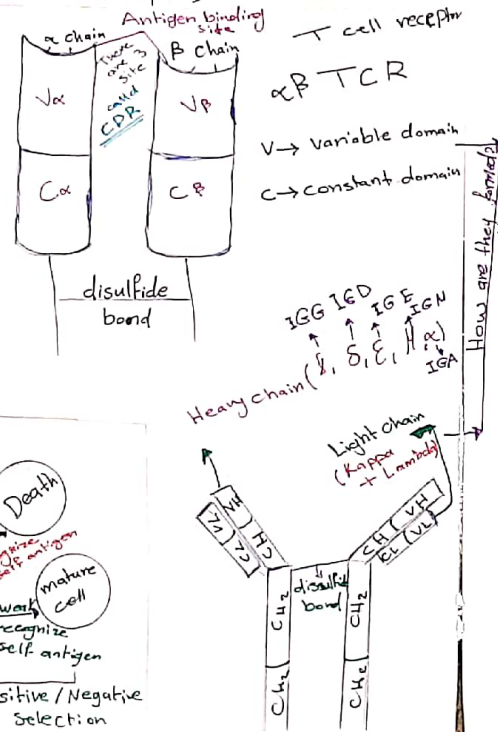 Antigen binding
site
α chain
β chain
There
are 3
site
called
CDR
Vα
Vβ
Cα
Cβ
disulfide
bond
T cell receptor
αβ TCR
V→ variable domain
C→ constant domain
How are they formed?
IGG IGD IGE IGM
Heavy chain (γ, δ, ε, μ, α)
IGA
Light chain
(Kappa
+ Lambda)
VH
CH
VL
CL
VH
CH
VL
CL
disulfide
bond
CH2
CH2
CH2
CH2
Death
self antigen
mature
cell
recognize
self antigen
sitive / Negative
selection